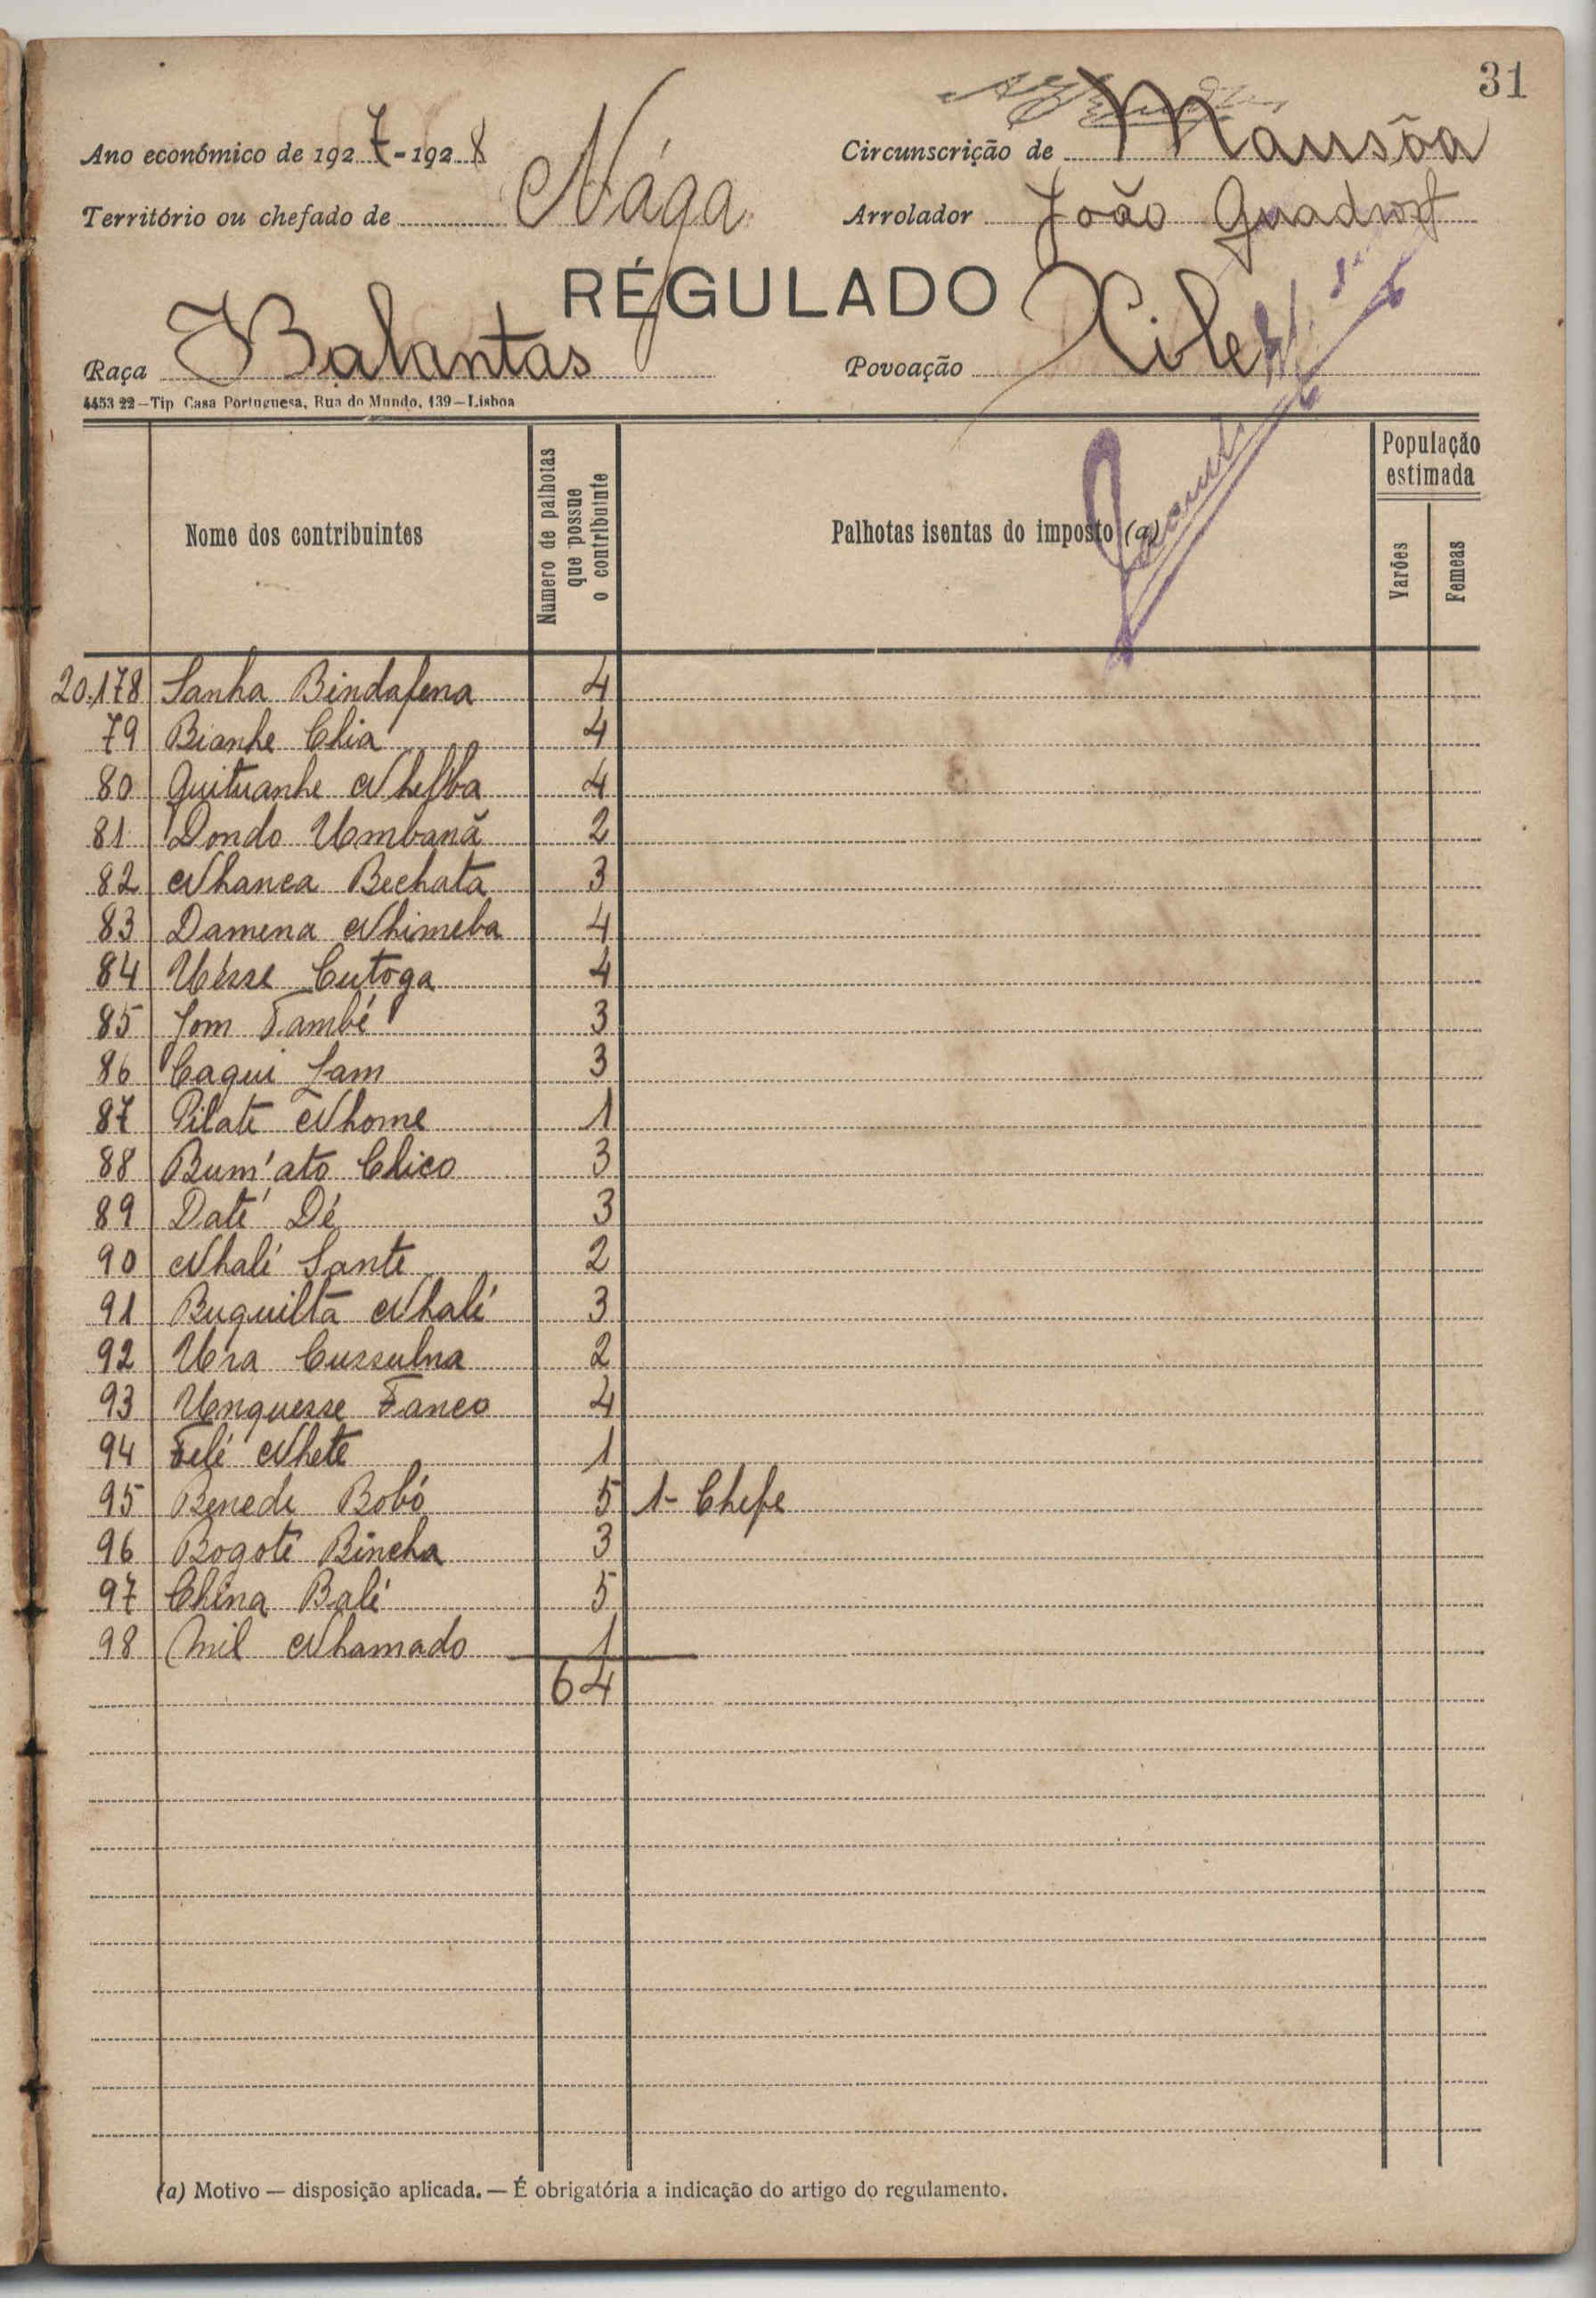 31
Ano económico de 1927-1928
Circunscrição de Mansôa
Território ou chefado de Nága
Arrolador João Quadros
RÉGULADO
Raça Balantas
Povoação Xile
4453 22—Tip Casa Portuguesa, Rua do Mundo, 139—Lisboa
Nome dos contribuintes
Numero de palhotas que possue o contribuinte
Palhotas isentas do imposto (a)
População estimada
Varões
Femeas
20.178 Sanha Bindafena 4
79 Bianhe Chia 4
80 Quituanhe Nhefba 4
81 Dondo Umbanã 2
82 Nhanca Bechata 3
83 Damena Nhimeba 4
84 Uésse Cutoga 4
85 Jom També 3
86 Caqui Jam 3
87 Pilate Nhome 1
88 Bum'ato Chico 3
89 Daté Dé 3
90 Nhalé Sante 2
91 Buquiltá Nhalé 3
92 Ura Cussulna 2
93 Unquesse Fanco 4
94 Felé Nhete 1
95 Benede Bobó 5 1- Chefe
96 Bogoté Bincha 3
97 China Balé 5
98 Mil Nhamado 1
64
(a) Motivo — disposição aplicada. — É obrigatória a indicação do artigo do regulamento.